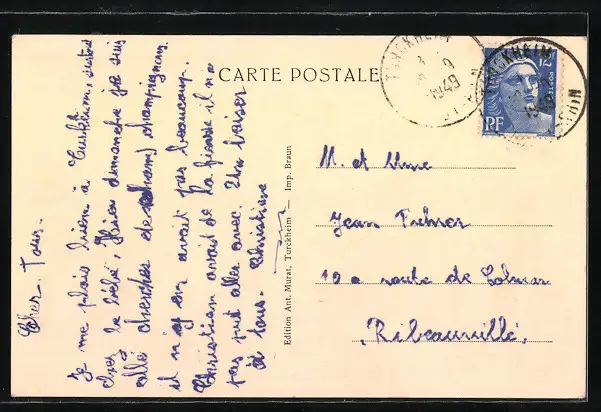 CARTE POSTALE
TURCKHEIM
1949
TURCKHEIM
1949
RF
12F
POSTES
Cher Tous.
Je me plais bien à Turckheim, surtout
chez le bébé, Hier dimanche je suis
allé chercher des champignons,
il n'y en avait pas beaucoup.
Christian avait de la fièvre il n'a
pas put aller avec. Un baiser
à tous. Christiane
Edition Ant. Murat, Turckheim — Imp. Braun
M. et Mme
Jean
10 a route de Colmar
Ribeauvillé.